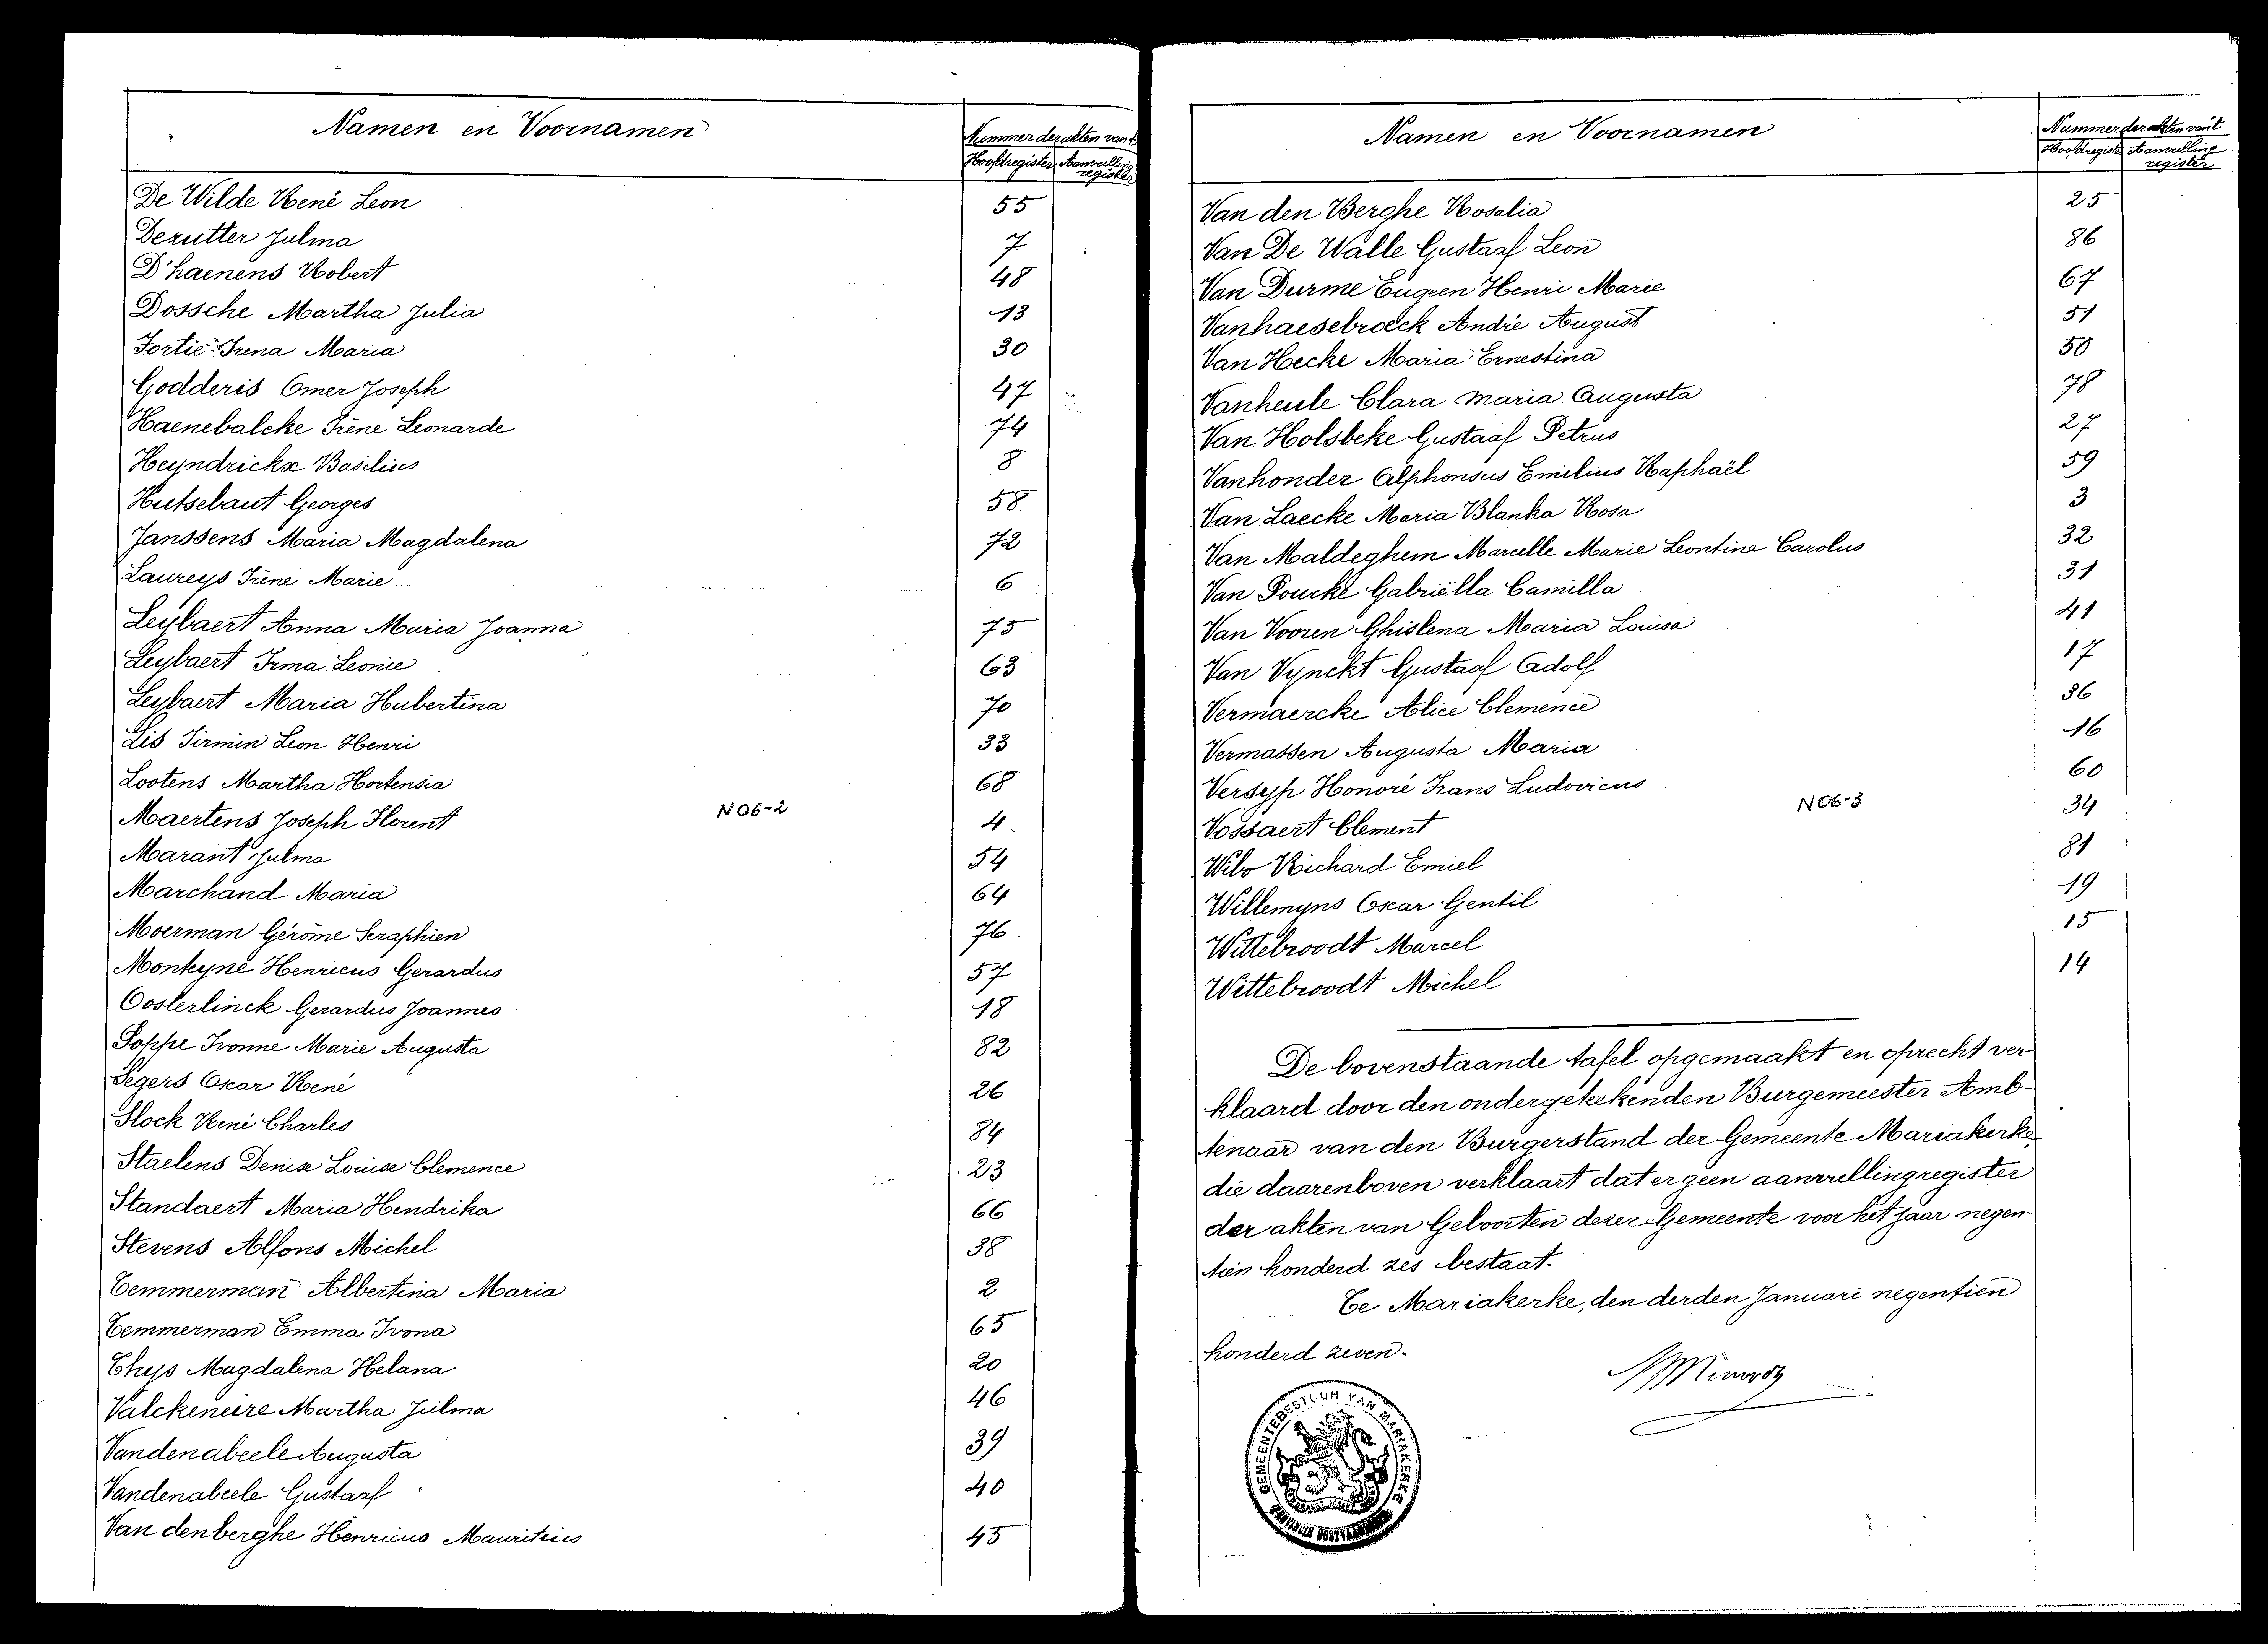 Namen en Voornamen
Nummer der akten van't
Hoofdregister Aanvulling
register
De Wilde René Leon 55
Derutter Julma 7
D'haenens Robert 48
Dossche Martha Julia 13
Fortié Irena Maria 30
Godderis Omer Joseph 47
Haenebalcke Irène Leonarde 74
Heyndrickx Basilius 8
Hutsebaut Georges 58
Janssens Maria Magdalena 72
Laureys Irène Marie 6
Leybaert Anna Maria Joanna 75
Leybaert Irma Leonie 63
Leybaert Maria Hubertina 70
Lis Firmin Leon Henri 33
Lootens Martha Hortensia 68
Maertens Joseph Florent N06-2 4
Marant Julma 54
Marchand Maria 64
Moerman Gérôme Seraphien 76
Monteyne Henricus Gerardus 57
Oosterlinck Gerardus Joannes 18
Poppe Ivonne Marie Augusta 82
Segers Oscar René 26
Slock René Charles 84
Staelens Denise Louise Clemence 23
Standaert Maria Hendrika 66
Stevens Alfons Michel 38
Temmerman Albertina Maria 2
Temmerman Emma Ivona 65
Thys Magdalena Helana 20
Valckeneire Martha Julma 46
Vandenabeele Augusta 39
Vandenabeele Gustaaf 40
Van denberghe Henricus Mauritius 45
Namen en Voornamen
Nummer der akten van't
Hoofdregister Aanvulling
register
Van den Berghe Rosalia 25
Van De Walle Gustaaf Leon 86
Van Durme Eugeen Henri Marie 67
Vanhaesebroeck André August 51
Van Hecke Maria Ernestina 50
Vanheule Clara Maria Augusta 78
Van Holsbeke Gustaaf Petrus 27
Vanhonder Alphonsus Emilius Raphaël 59
Van Laecke Maria Blanka Rosa 3
Van Maldeghem Marcelle Marie Leontine Carolus 32
Van Poucke Gabriëlla Camilla 31
Van Vooren Ghislena Maria Louisa 41
Van Vynckt Gustaaf Adolf 17
Vermaercke Alice Clemence 36
Vermassen Augusta Maria 16
Versyp Honoré Frans Ludovicus 60
Vossaert Clement N06-3 34
Wibo Richard Emiel 81
Willemyns Oscar Gentil 19
Wittebroodt Marcel 15
Wittebroodt Michel 14
De bovenstaande tafel opgemaakt en oprecht ver-
klaard door den ondergeteekenden Burgemeester Amb-
tenaar van den Burgerstand der Gemeente Mariakerke
die daarenboven verklaart dat er geen aanvullingregister
der akten van Geboorten dezer Gemeente voor het jaar negen-
tien honderd zes bestaat.
Te Mariakerke, den derden Januari negentien
honderd zeven.
GEMEENTEBESTUUR VAN MARIAKERKE